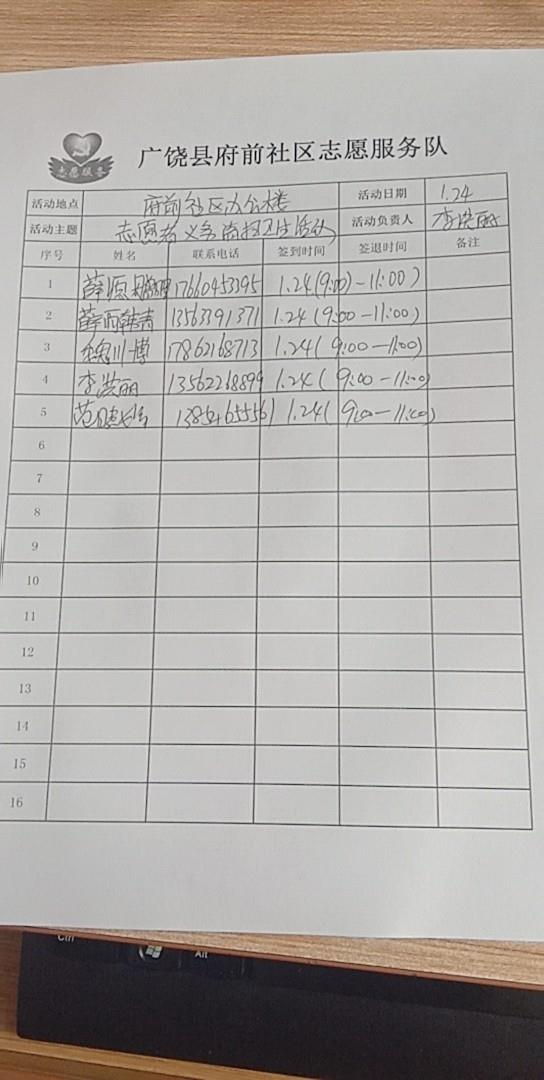 志愿服务
广饶县府前社区志愿服务队
活动地点 府前社区办公楼 活动日期 1.24
活动主题 志愿者义务清扫卫生活动 活动负责人 李洪丽
序号 姓名 联系电话 签到时间 签退时间 备注
1 薛 17660453195 1.24(9:00)-11:00)
2 薛 13563391371 1.24(9:00-11:00)
3 魏川博 17862168713 1.24(9:00-11:00)
4 李洪丽 13562268899 1.24(9:00-11:00)
5 范 13854655561 1.24(9:00-11:00)
6
7
8
9
10
11
12
13
14
15
16
Ctrl Alt